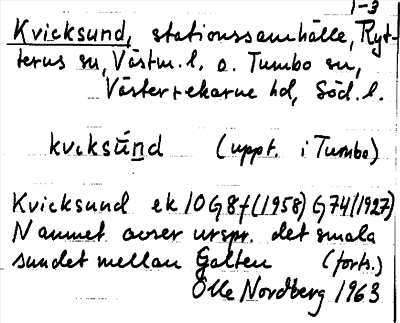 1-3
Kvicksund, stationssamhälle, Ryt-
terns sn, Västm. l. o. Tumbo sn,
Västerrekarne hd, Söd. l.
kvicksúnd (uppt. i Tumbo)
Kvicksund ek 10G8f (1958) G74 (1927)
Namnet avser urspr. det smala
sundet mellan Galten (forts.)
Olle Nordberg 1963